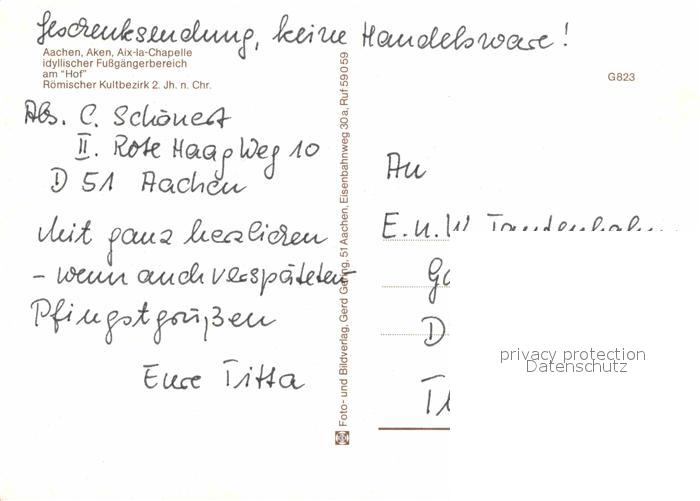 Geschenksendung, keine Handelsware!
Aachen, Aken, Aix-la-Chapelle
idyllischer Fußgängerbereich
am "Hof"
Römischer Kultbezirk 2. Jh. n. Chr.
G823
Abs. C. Schönert
II. Rote Haag Weg 10
D 51 Aachen
Mit ganz herzlichen
- wenn auch verspäteten
Pfingstgrüßen
Eure Titta
Foto- und Bildverlag, Gerd Gehring, 51 Aachen, Eisenbahnweg 30a, Ruf 59059
An
E. u. W.
D
privacy protection
Datenschutz